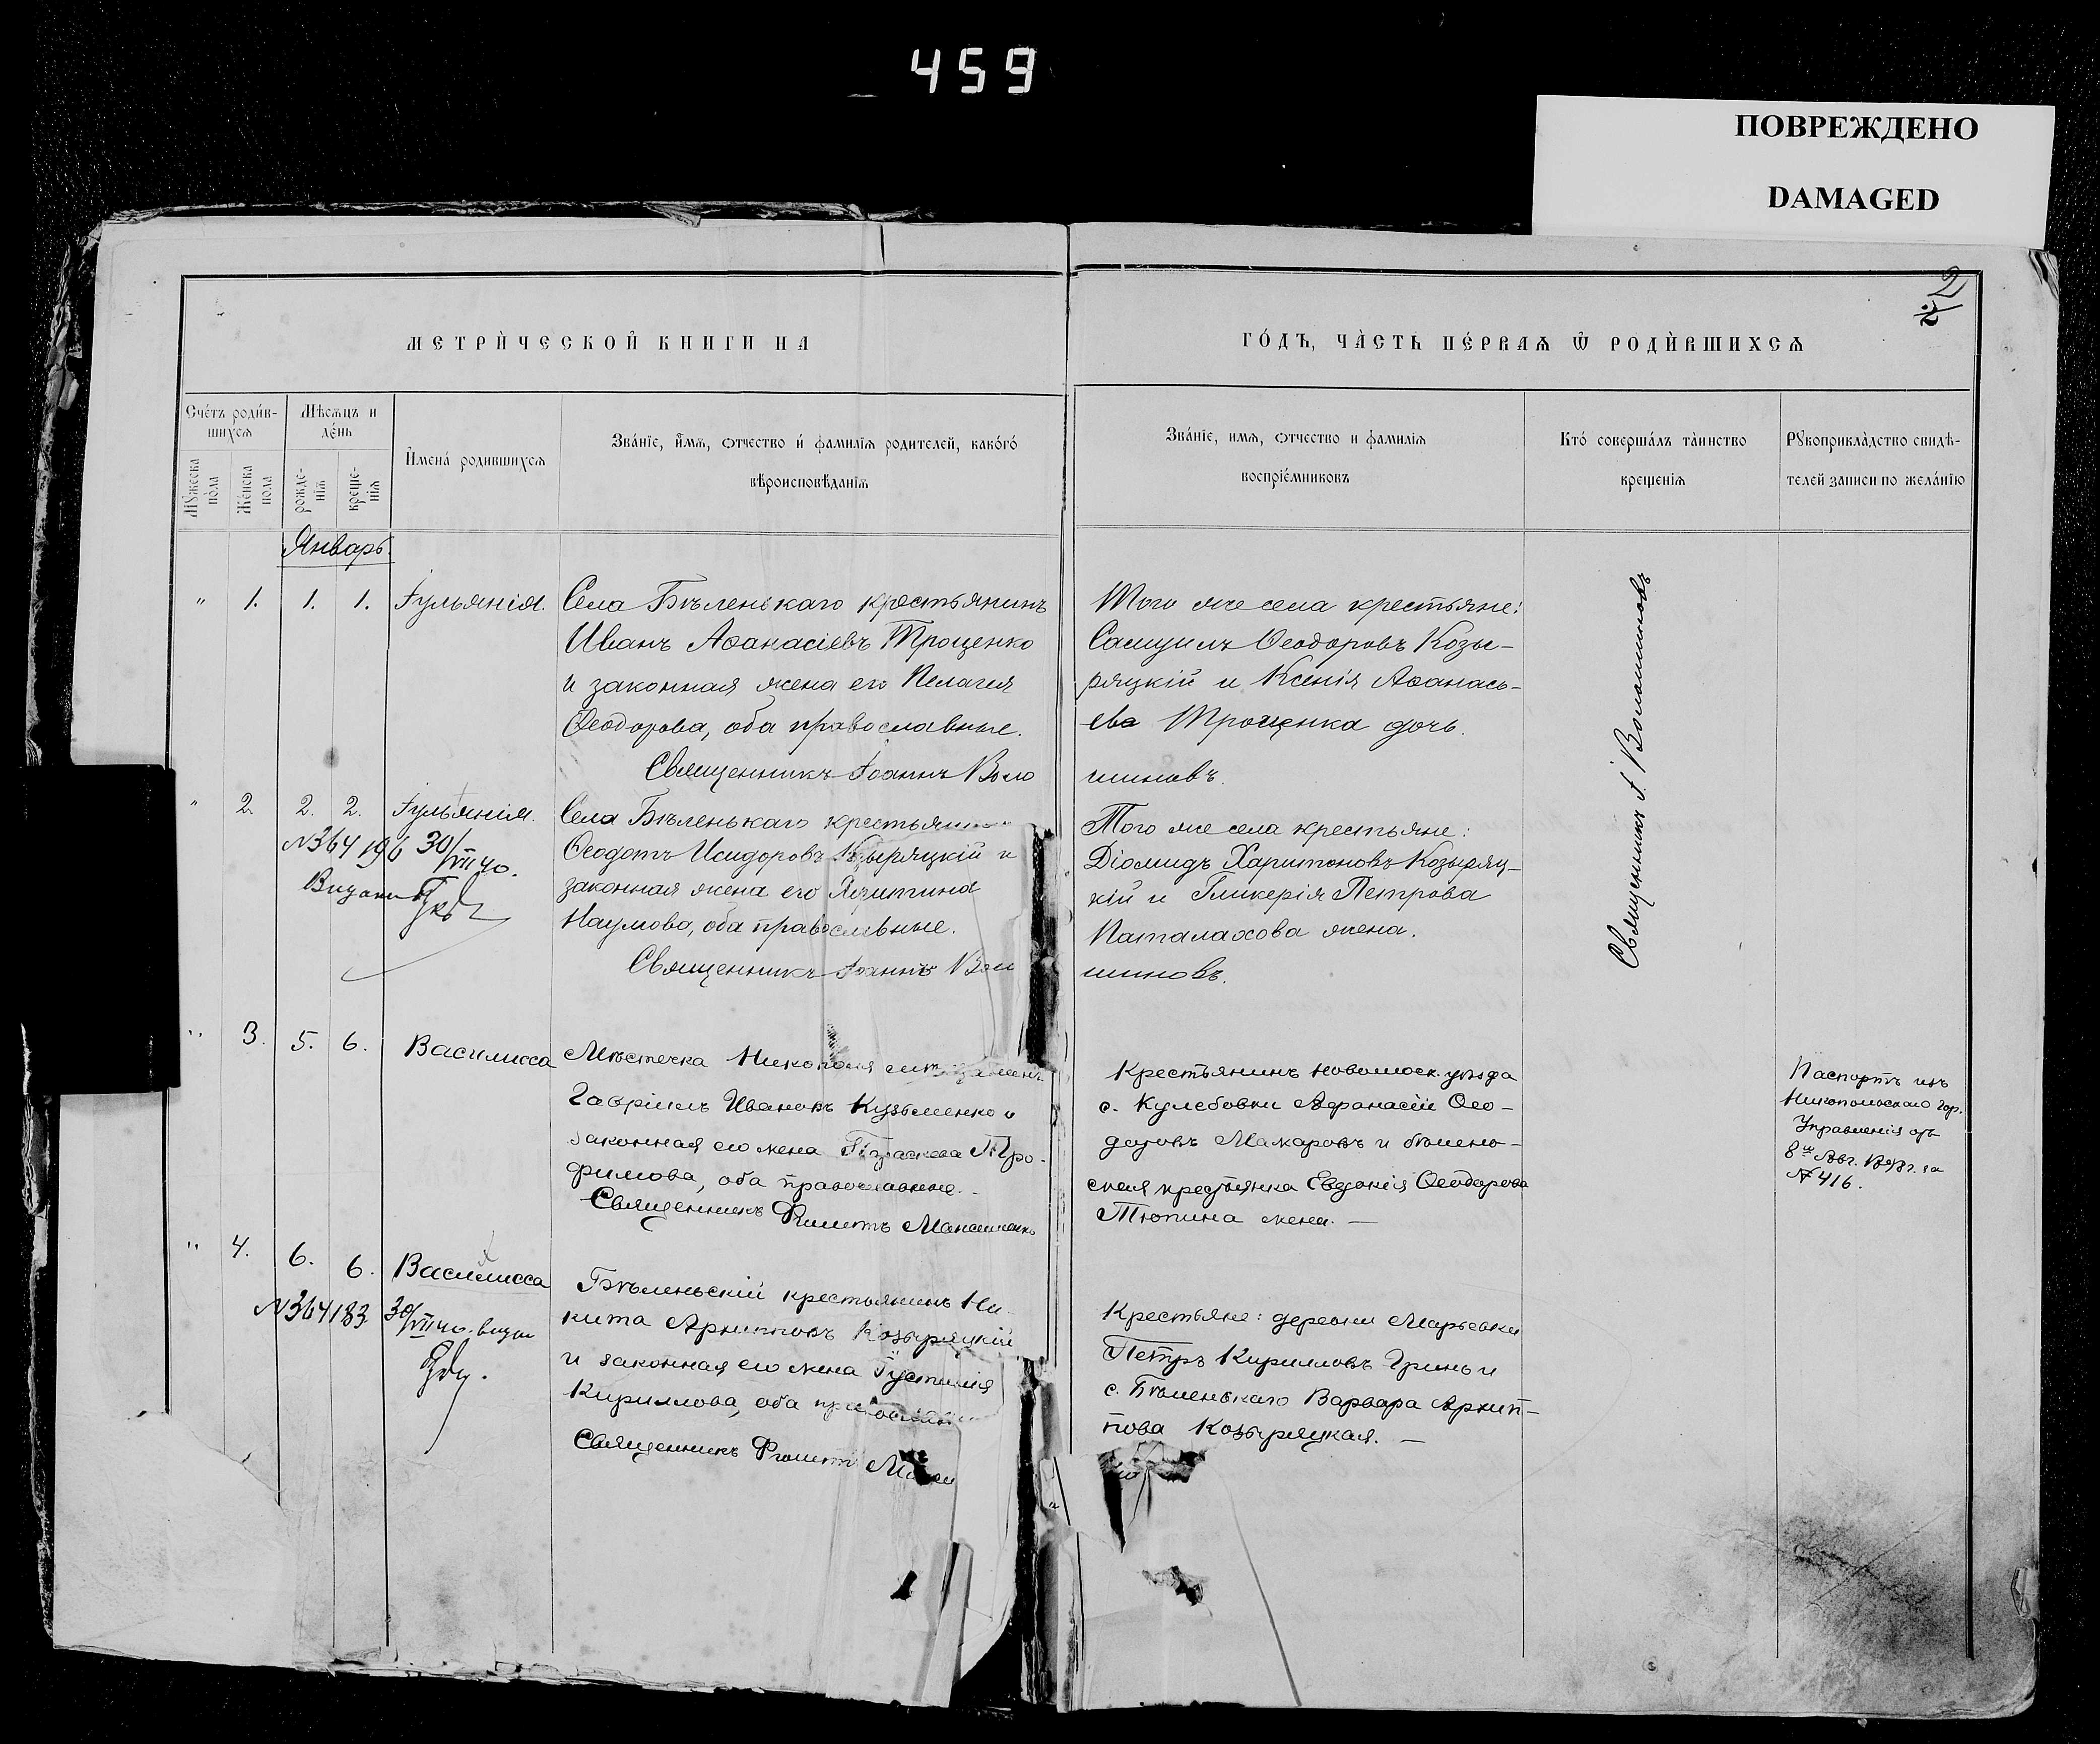 459
ПОВРЕЖДЕНО
DAMAGED
2
МЕТРИ́ЧЕСКОЙ КНИГИ НА
ГО́ДЪ, ЧА́СТЬ ПЕ́РВАѦ Ѿ РОДИ́ВШИХСѦ
Сче́тъ роди́в-
шихсѧ
Мѣ́сѧцъ и
де́нь
Мꙋжеска
по́ла
Же́нска
пола
рожде-
нїѧ
креще-
нїѧ
И҆мена́ родившихсѧ
Зва́нїе, и҆́мѧ, ѻтчество и҆ фамилїѧ родителей, како́гѡ
вѣроисповѣ́данїѧ
Зва́нїе, имѧ, ѻтчество и фамилїѧ
воспрїе́мниковъ
Кто́ соверша́лъ та́инство
крещенїѧ
Рꙋкоприкла́дство свидѣ-
телей записи по жела́нїю
Январь
" 1. 1. 1. Іульянія.
Села Бѣленькаго крестьянинъ
Иванъ Аѳанасіевъ Троценко
и законная жена его Пелагея
Ѳеодорова, оба православные.
Священникъ Іоаннъ Воло
Того же села крестьяне:
Самуилъ Ѳеодоровъ Козы-
ряцкій и Ксенія Аѳанась-
ева Троценка дочь.
шиновъ.
Священникъ І. Волошиновъ
" 2. 2. 2. Іульянія.
№364196 30/VII 40.
Видано
Села Бѣленькаго крестьянинъ
Ѳеодотъ Исидоровъ Козыряцкій и
законная жена его
Наумова, оба православные.
Священникъ Іоаннъ Воло
Того же села крестьяне:
Діомидъ Харитоновъ Козыряц-
кій и Гликерія Петрова
Паталахова жена.
шиновъ.
" 3. 5. 6. Василисса
Мѣстечка Никополя мѣщанинъ
Гавріилъ Ивановъ Кузьменко и
законная его жена Параскева Тро-
фимова, оба православные.
Священникъ
Крестьянинъ Новомоск. уѣзда
с. Кулебовки Аѳанасій Ѳео-
дотовъ Макаровъ и бѣлено-
ская крестьянка Евдокія Ѳеодорова
Тюпина жена. —
Паспортъ изъ
Никопольскаго Гор.
Управленія отъ
8го Авг. за
№ 416.
" 4. 6. 6. Василисса
№364183 30/VII 40. видан
Бѣленьскій крестьянинъ Ни-
кита Архиповъ Козыряцкій
и законная его жена Іустинія
Кириллова, оба православн
Священникъ
Крестьяне: деревни Марьевки
Петръ Кирилловъ Гринь и
с. Бѣленькаго Варвара Архип-
пова Козыряцкая. —